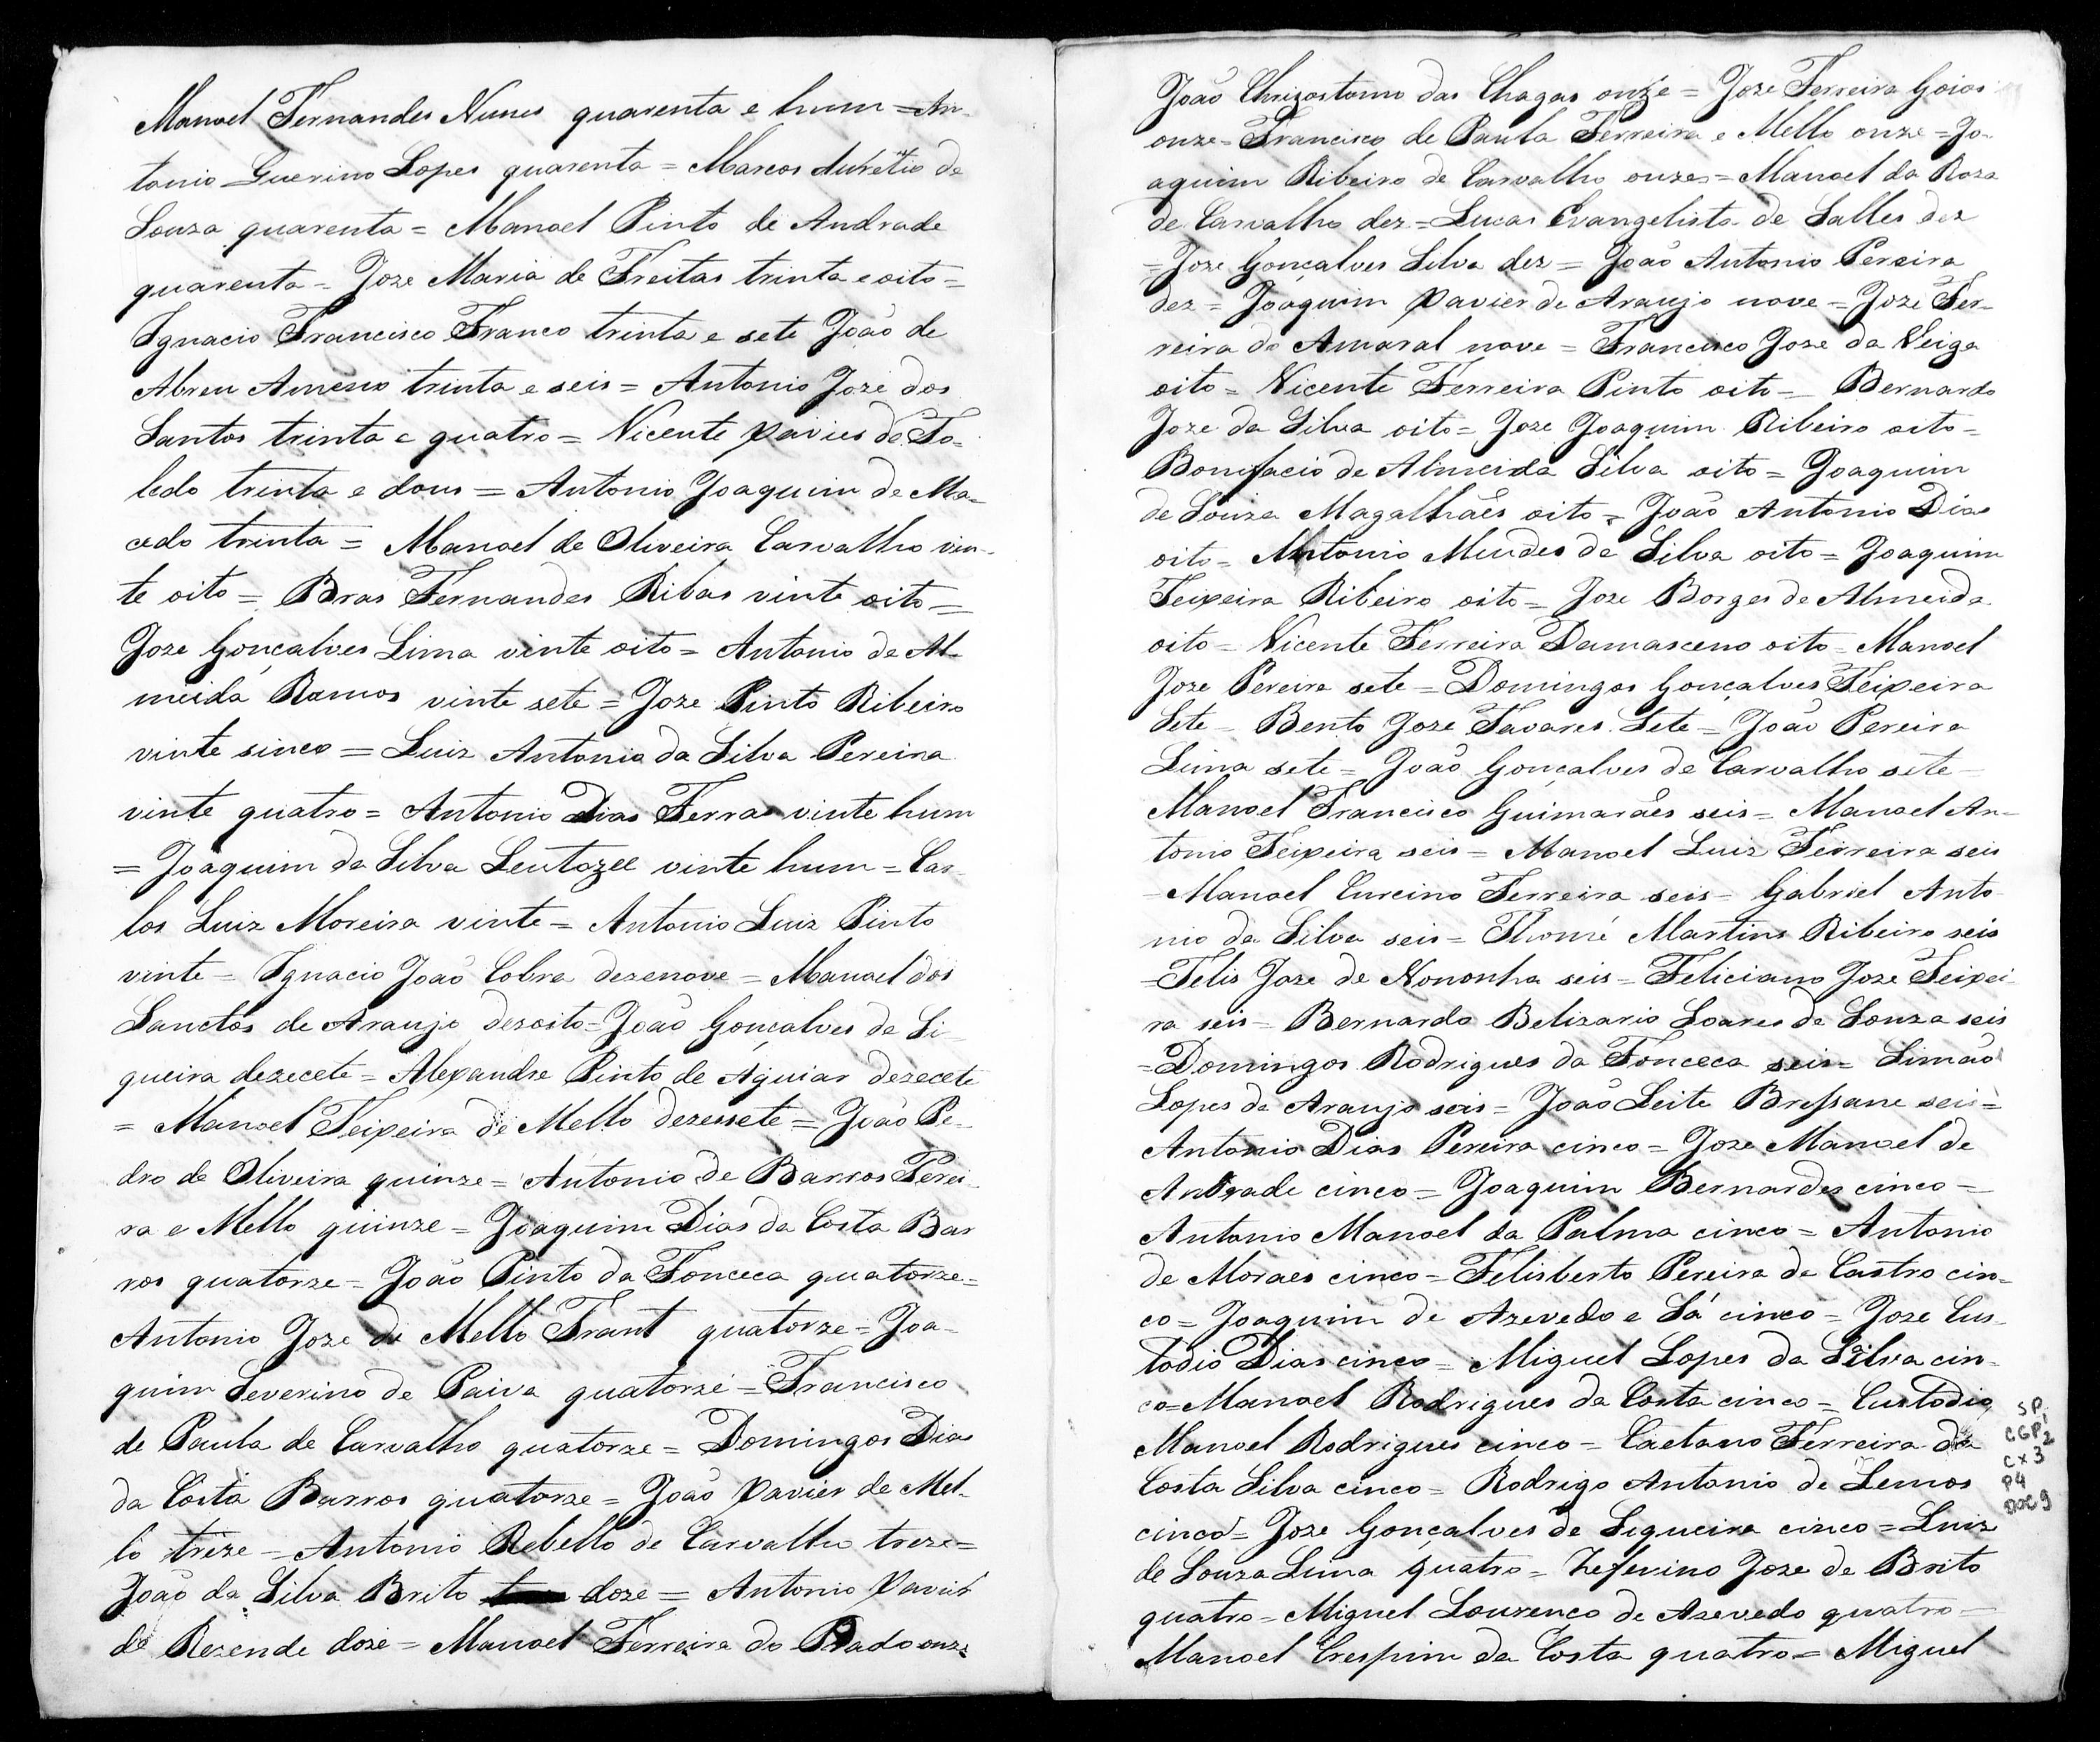 Manoel Fernandes Nunes quarenta e hum = An-
tonio Guerino Lopes quarenta = Marcos Aurelio de
Souza quarenta = Manoel Pinto de Andrade
quarenta = Joze Maria de Freitas trinta e oito =
Ignacio Francisco Franco trinta e sete João de
Abreu trinta e seis = Antonio Joze dos
Santos trinta e quatro = Vicente Xavier de To-
ledo trinta e dous = Antonio Joaquim de Ma-
cedo trinta = Manoel de Oliveira Carvalho vin-
te oito = Bras Fernandes Ribas vinte oito =
Joze Gonçalves Lima vinte oito = Antonio de Al-
meida Ramos vinte sete = Joze Pinto Ribeiro
vinte sinco = Luiz Antonio da Silva Pereira
vinte quatro = Antonio Dias Ferras vinte hum
= Joaquim da Silva vinte hum = Car-
los Luiz Moreira vinte = Antonio Luiz Pinto
vinte = Ignacio João Cobra dezenove = Manoel dos
Sanctos de Araujo dezoito = João Gonçalves de Si-
queira dezecete = Alexandre Pinto de Aguiar dezecete
= Manoel Teixeira de Mello dezessete = João Pe-
dro de Oliveira quinze = Antonio de Barros Perei-
ra e Mello quinze = Joaquim Dias da Costa Bar
ros quatorze = João Pinto da Fonceca quatorze =
Antonio Joze de Mello Trant quatorze = Joa-
quim Severino de Paiva quatorze = Francisco
de Paula de Carvalho quatorze = Domingos Dias
da Costa Barros quatorze = João Xavier de Mel-
lo treze = Antonio Rebello de Carvalho treze =
João da Silva Brito doze = Antonio Xavier
de Rezende doze = Manoel Ferreira do Prado onze
João Chrizostomo das Chagas onze = Joze Ferreira Goios
onze = Francisco de Paula Ferreira e Mello onze = Jo-
aquim Ribeiro de Carvalho onze = Manoel da Roza
de Carvalho dez = Lucas Evangelista de Salles dez
= Joze Gonçalves Silva dez = João Antonio Pereira
dez = Joaquim Xavier de Araujo nove = Joze Fer-
reira do Amaral nove = Francisco Joze da Veiga
oito = Vicente Ferreira Pinto oito = Bernardo
Joze da Silva oito = Joze Joaquim Ribeiro oito =
Bonifacio de Almeida Silva oito = Joaquim
de Souza Magalhães oito = João Antonio Dias
oito = Antonio Mendes da Silva oito = Joaquim
Teixeira Ribeiro oito = Joze Borges de Almeida
oito = Vicente Ferreira Damasceno oito = Manoel
Joze Pereira sete = Domingos Gonçalves Teixeira
Sete = Bento Joze Tavares Sete = João Pereira
Lima sete = João Gonçalves de Carvalho sete =
Manoel Francisco Guimarães seis = Manoel An-
tonio Teixeira seis = Manoel Luiz Ferreira seis
= Manoel Curcino Ferreira seis = Gabriel Anto
nio da Silva seis = Thomé Martins Ribeiro seis
= Felis Joze de Nononha seis = Feliciano Joze Teixei-
ra seis = Bernardo Belizario Soares de Souza seis
= Domingos Rodrigues da Fonceca seis = Simão
Lopes de Araujo seis = João Leite Bressane seis =
Antonio Dias Pereira cinco = Joze Manoel de
Andrade cinco = Joaquim Bernardes cinco =
Antonio Manoel da Palma cinco = Antonio
de Moraes cinco = Felisberto Pereira de Castro cin-
co = Joaquim de Azevedo e Sá cinco = Joze Cus-
todio Dias cinco = Miguel Lopes da Silva cin-
co = Manoel Rodrigues da Costa cinco = Custodio
Manoel Rodrigues cinco = Caetano Ferreira da
Costa Silva cinco = Rodrigo Antonio de Lemos
cinco = Joze Gonçalves de Siqueira cinco = Luiz
de Souza Lima quatro = Zeferino Joze de Brito
quatro = Miguel Lourenco de Azevedo quatro =
Manoel Crespim da Costa quatro = Miguel
SP
CGP2
CX3
P4
DOC9